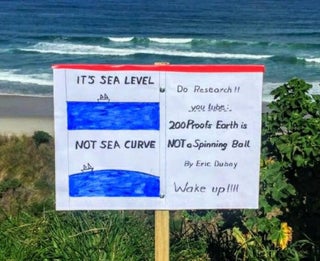 IT'S SEA LEVEL
NOT SEA CURVE
Do Research!!
you tube:
200 Proofs Earth is
NOT a Spinning Ball
By Eric Dubay
Wake up!!!!